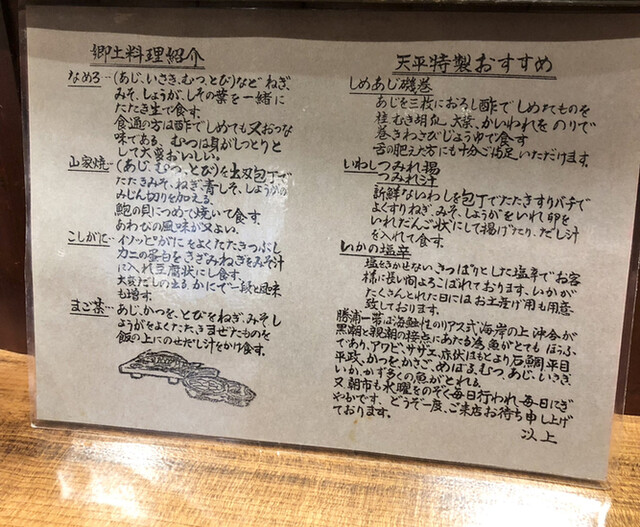 郷土料理紹介
なめろ‥(あじ、いさき、むつ、とび)など ねぎ、
みそ、しょうが、しその葉を一緒に
たたき生で食す。
食通の方は酢でしめても又おつな
味である、むつは身がしっとりと
して大変おいしい。
山家焼‥(あじ、むつ、とび)を出刃包丁で
たたきみそ、ねぎ、青しそ、しょうがの
みじん切りを加える。
鮑の貝につめて焼いて食す。
あわびの風味が又よい。
こしがに‥イソッピがにをよくたたきつぶし
カニの蛋白をきざみねぎをみそ汁
に入れ豆腐状にし食す。
大変だしの出る、かにで一段と風味
も増す。
まご茶‥あじ、かつを、とびをねぎ、みそ、し
ょうがをよくたたきまぜたものを
飯の上にのせだし汁をかけ食す。
天平特製おすすめ
しめあじ磯巻
あじを三枚におろし酢でしめたものを
桂むき胡瓜、大葉、かいわれをのりで
巻きわさびじょうゆで食す
舌の肥えた方にも十分ご満足いただけます。
いわしつみれ揚
つみれ汁
新鮮ないわしを包丁でたたきすりバチで
よくすりねぎ、みそ、しょうがをいれ卵を
いれだんご状にして揚げたり、だし汁
を入れて食す。
いかの塩辛
塩をきかせないさっぱりとした塩辛でお客
様に長い間よろこばれております、いかが
たくさんとれた日にはお土産げ用も用意
致しております。
勝浦一帯は海蝕性のリアス式海岸の上沖合が
黒潮と親潮の接点にあたる為魚がとても ほうふ
であり、アワビ、サザエ、赤伏はもとより石鯛、平目
平政、かつを、かさご、めばる、むつ、あじ、いさき、
いか、かず多くの魚がとれる。
又朝市も水曜をのぞく毎日行われ毎日にぎ
やかです、どうぞ一度、ご来店お待ち申し上げ
ております。
以上